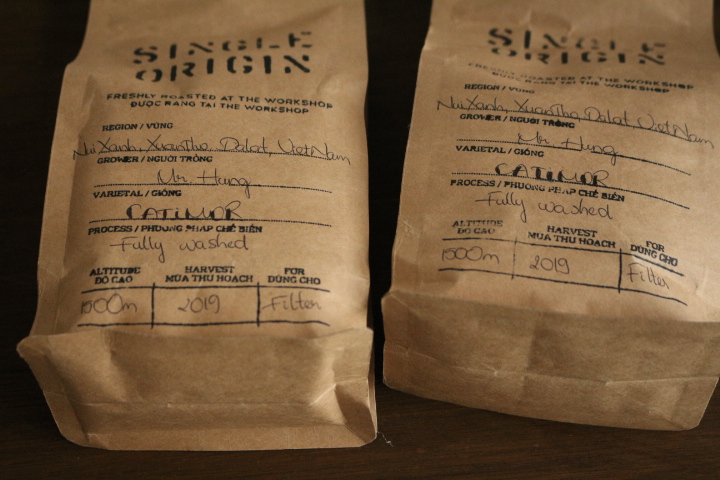 SINGLE
ORIGIN
FRESHLY ROASTED AT THE WORKSHOP
ĐƯỢC RANG TẠI THE WORKSHOP
REGION / VÙNG
Nui Xanh, Xuan Tho, Dalat, VietNam
GROWER / NGƯỜI TRỒNG
Mr. Hung
VARIETAL / GIỐNG
CATIMOR
PROCESS / PHƯƠNG PHÁP CHẾ BIẾN
Fully washed
ALTITUDE HARVEST FOR
ĐỘ CAO MÙA THU HOẠCH DÙNG CHO
1500m 2019 Filter
SINGLE
ORIGIN
FRESHLY ROASTED AT THE WORKSHOP
ĐƯỢC RANG TẠI THE WORKSHOP
REGION / VÙNG
Nui Xanh, Xuan Tho, Dalat, VietNam
GROWER / NGƯỜI TRỒNG
Mr. Hung
VARIETAL / GIỐNG
CATIMOR
PROCESS / PHƯƠNG PHÁP CHẾ BIẾN
Fully washed
ALTITUDE HARVEST FOR
ĐỘ CAO MÙA THU HOẠCH DÙNG CHO
1500m 2019 Filter